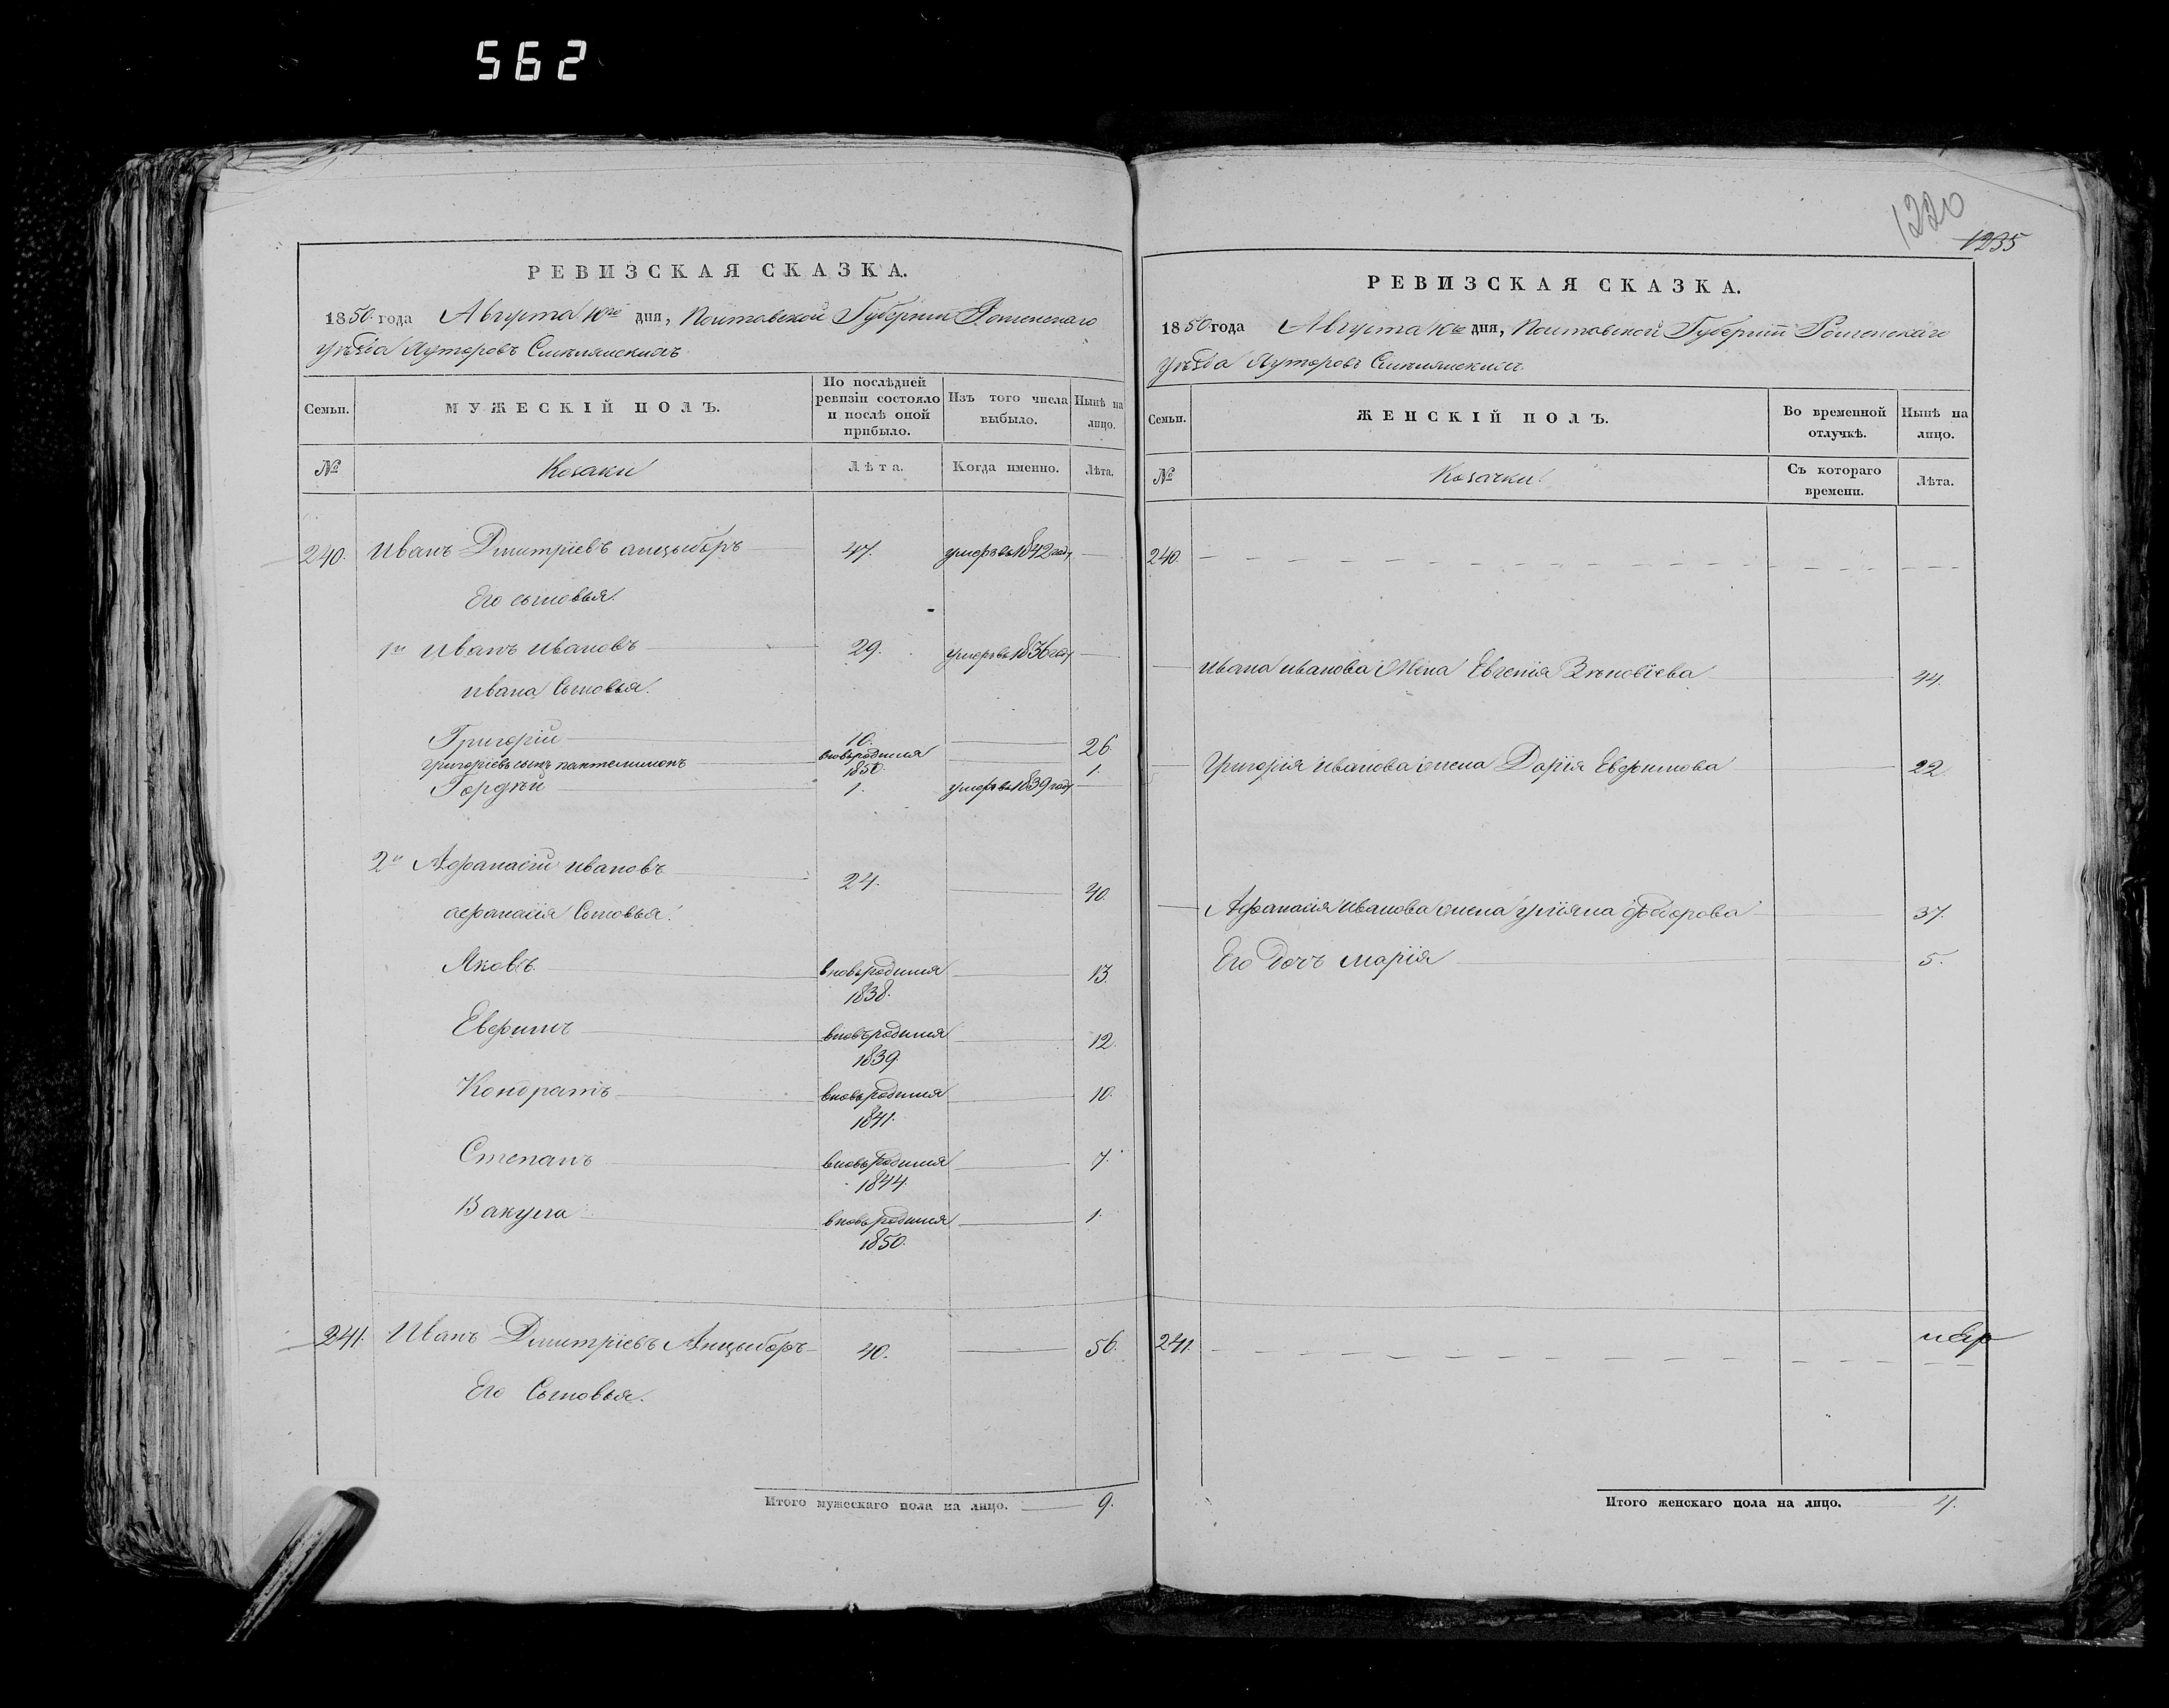 562
1220
1235
РЕВИЗСКАЯ СКАЗКА.
1850 года Августа 10го дня, Полтавской Губернии Роменскаго
уѣзда Хуторовъ Смѣлянскихъ
Семьи. МУЖЕСКІЙ ПОЛЪ. По послѣдней ревизіи состояло и послѣ оной прибыло. Изъ того числа выбыло. Нынѣ на лицо.
№ Козаки Лѣта. Когда именно. Лѣта.
240. Иванъ Дмитріевъ анцыборъ 47. умеръ въ 1842 году
Его сыновья.
1й Иванъ Ивановъ 29. умеръ въ 1836 году
Ивана Сыновья.
Григорій 10. 26
Григоріевъ сынъ пантелимонъ вновьродился 1850. 1.
Гордѣй 1. умеръ въ 1839 году
2й Афанасій Ивановъ 24. 40.
афанасія Сыновья.
Яковъ вновьродился 13.
1838.
Евфимъ вновьродился 12.
1839.
Кондратъ вновьродился 10.
1841.
Степанъ вновьродился 7.
1844.
Вакула вновьродился 1.
1850.
241. Иванъ Дмитріевъ Анцыборъ 40. 56.
Его Сыновья.
Итого мужескаго пола на лицо. 9.
РЕВИЗСКАЯ СКАЗКА.
1850 года Августа 10го дня, Полтавской Губерніи Роменскаго
уѣзда Хуторовъ Смѣлянскихъ
Семьи. ЖЕНСКІЙ ПОЛЪ. Во временной отлучкѣ. Нынѣ на лицо.
№ Козачки. Съ котораго времени. Лѣта.
240.
Ивана Иванова Жена Евгенія Зѣновіева 44.
Григорія Иванова жена Дарія Евфимова 22.
Афанасія Иванова жена Уліяна Федорова 37.
Его Дочъ Марія 5.
241.
Итого женскаго пола на лицо. 4.